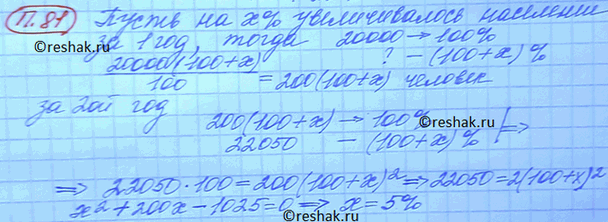 П.81 Пусть на x% увеличивалось населении
за 1 год, тогда 20000 → 100%
©reshak.ru
20000(100+x) ? — (100+x) %
100 = 200(100+x) человек
за 2ой год
200(100+x) → 100% ©reshak.ru
22050 — (100+x) % | ⇒
⇒ 22050·100 = 200(100+x)² ⇒ 22050 = 2(100+x)²
x² + 200x - 1025 = 0 ⇒ x = 5%
©reshak.ru